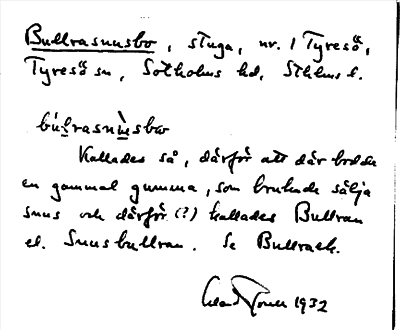 Bullrasnusbo, stuga, nr. 1 Tyresö,
Tyresö sn, Sotholms hd, Sthlms l.
búl̠rasnùsbω
Kallades så, därför att där bodde
en gammal gumma, som brukade sälja
snus och därför (?) kallades Bullran
el. Snusbullran. Se Bullrack.
1932